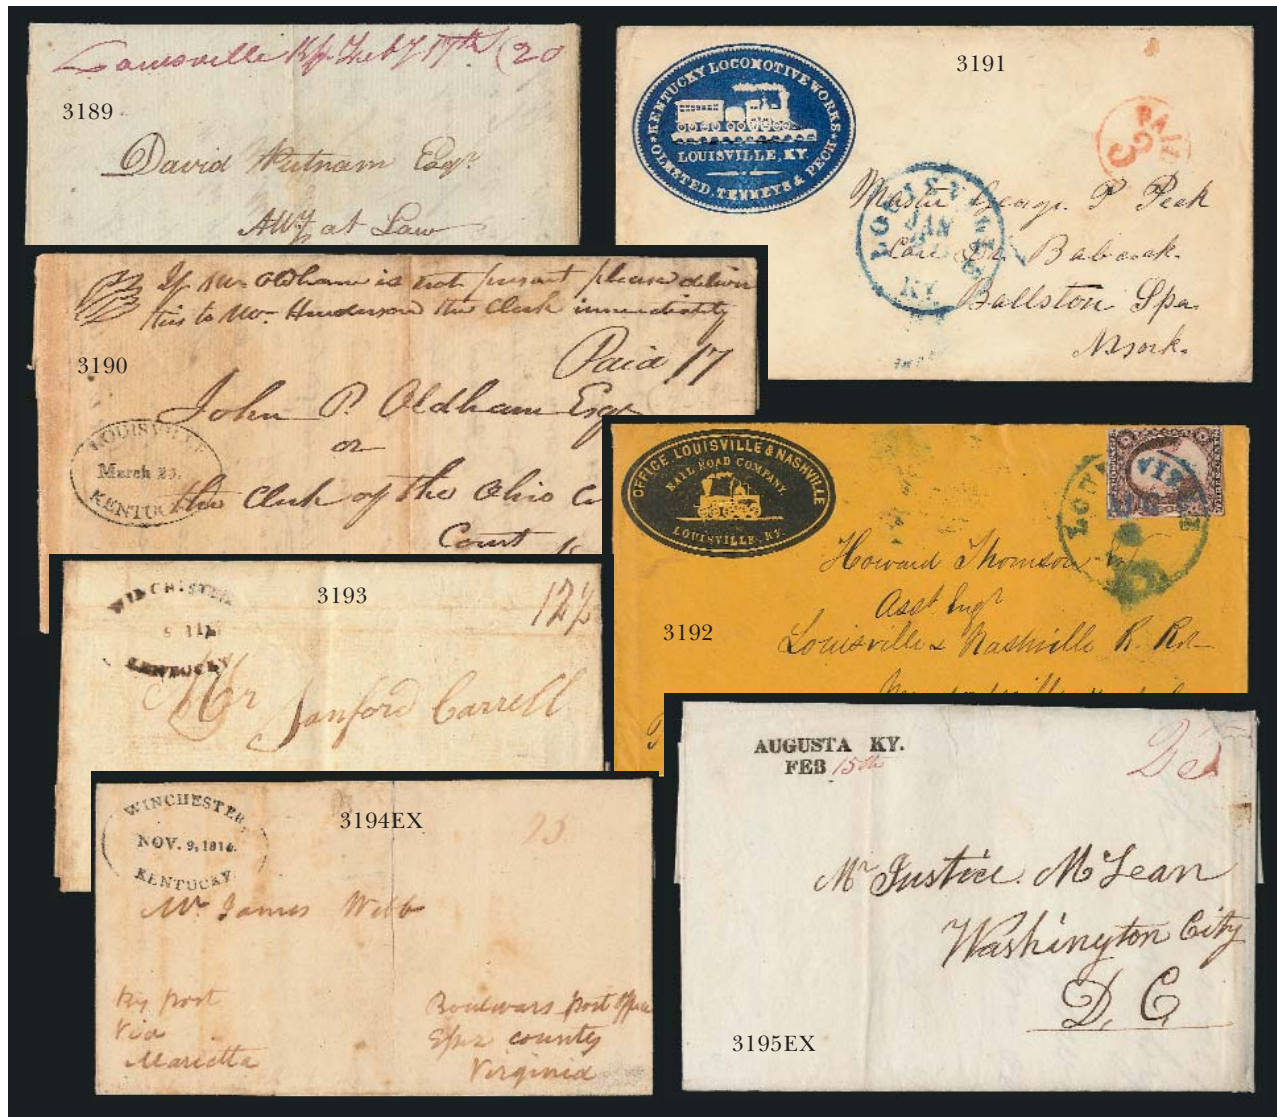 Louisville Ky. Feby 17th (20
3189
David Putnam Esqr.
Atty at Law
3191
KENTUCKY LOCOMOTIVE WORKS
LOUISVILLE, KY.
OLMSTED, TENNEYS & PECK
PAID
3
LOUISVILLE
JAN
KY.
Master George P Peck
Care Dr. Babcock
Ballston Spa
N York.
If Mr Oldham is not present please deliver
this to Mr Henderson the Clerk immediately
3190
Paid 17
John P. Oldham Esqr
or
the Clerk of the Ohio C
Court
LOUISVILLE
March 23.
KENTUCKY
OFFICE LOUISVILLE & NASHVILLE
RAIL ROAD COMPANY
LOUISVILLE, KY.
LOUISVILLE
Howard Thomson
Asst Engr
Louisville & Nashville R. Rd
3192
WINCHESTER
KENTUCKY
3193
12½
Mr Sanford Carrell
WINCHESTER
NOV. 9, 1814.
KENTUCKY
3194EX
25
Mr James Webb
By post
Via
Marietta
Boulwars post office
Essex county
Virginia
AUGUSTA KY.
FEB 15th
Mr Justice McLean
Washington City
D. C
3195EX